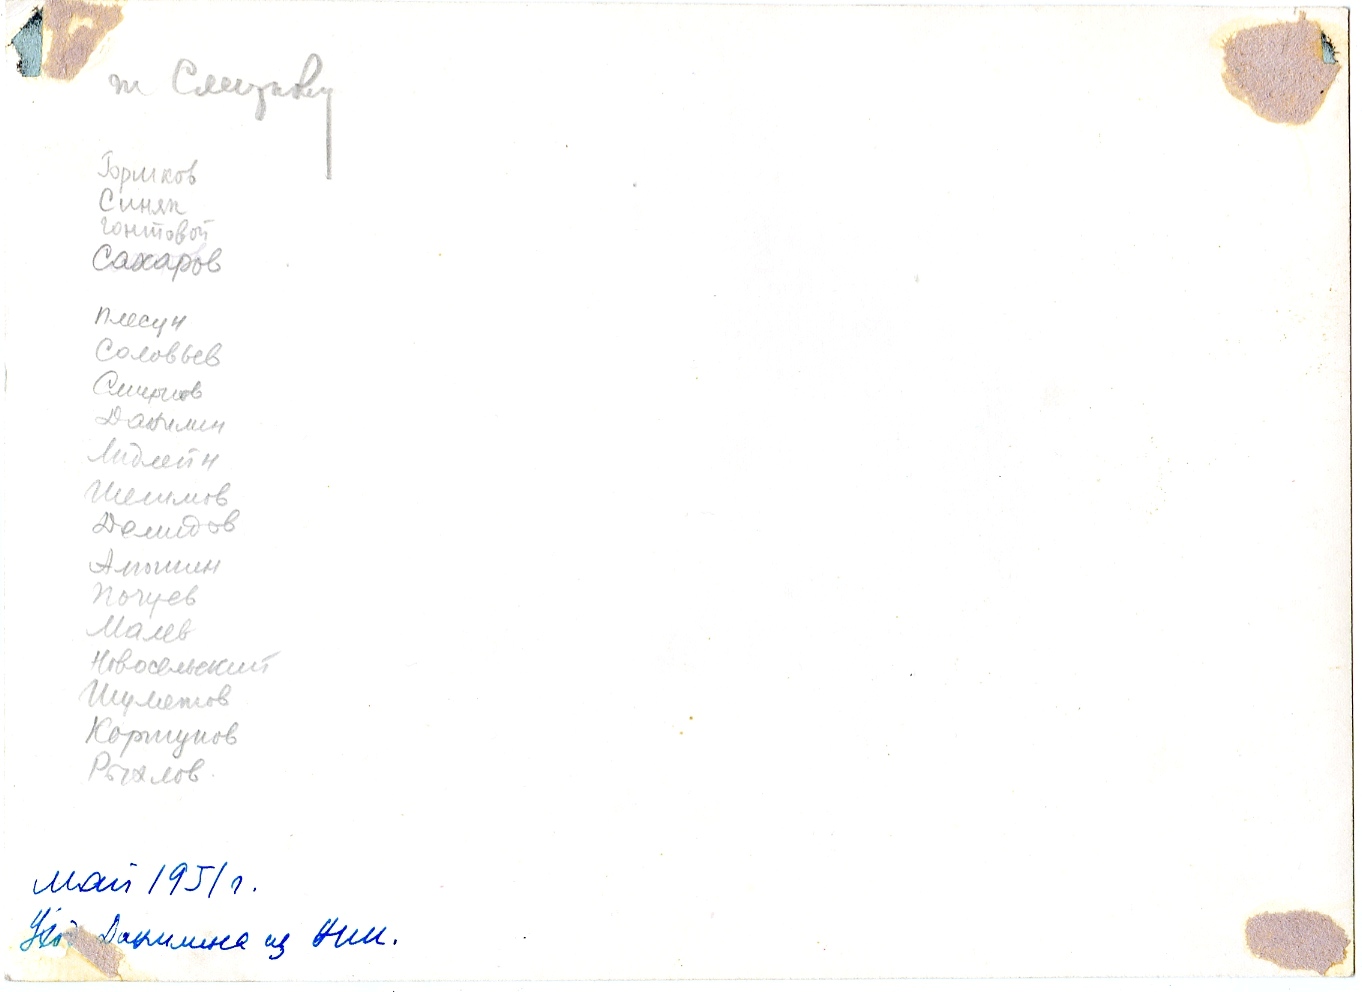 т Слезкову
Горшков
Синяк
Гонтовой
Сахаров
Плесун
Соловьев
Смирнов
Данилин
Лидлейн
Демидов
Алёшин
Почуев
Малев
Новосельский
Шуметов
Коршунов
Рыхлов.
Май 1951 г.
Уход Данилина из НИИ.